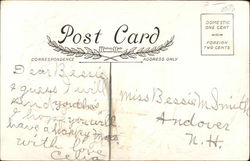 Post Card
DOMESTIC
ONE CENT
FOREIGN
TWO CENTS
CORRESPONDENCE
ADDRESS ONLY
Dear Bessie
I guess I will
send you this
I hope you will
have a happy
with love
Celia
Miss Bessie M. Smith
Andover
N. H.